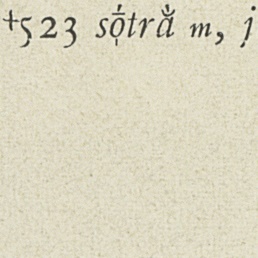 ⁺523 sọ̄́trằ m, j